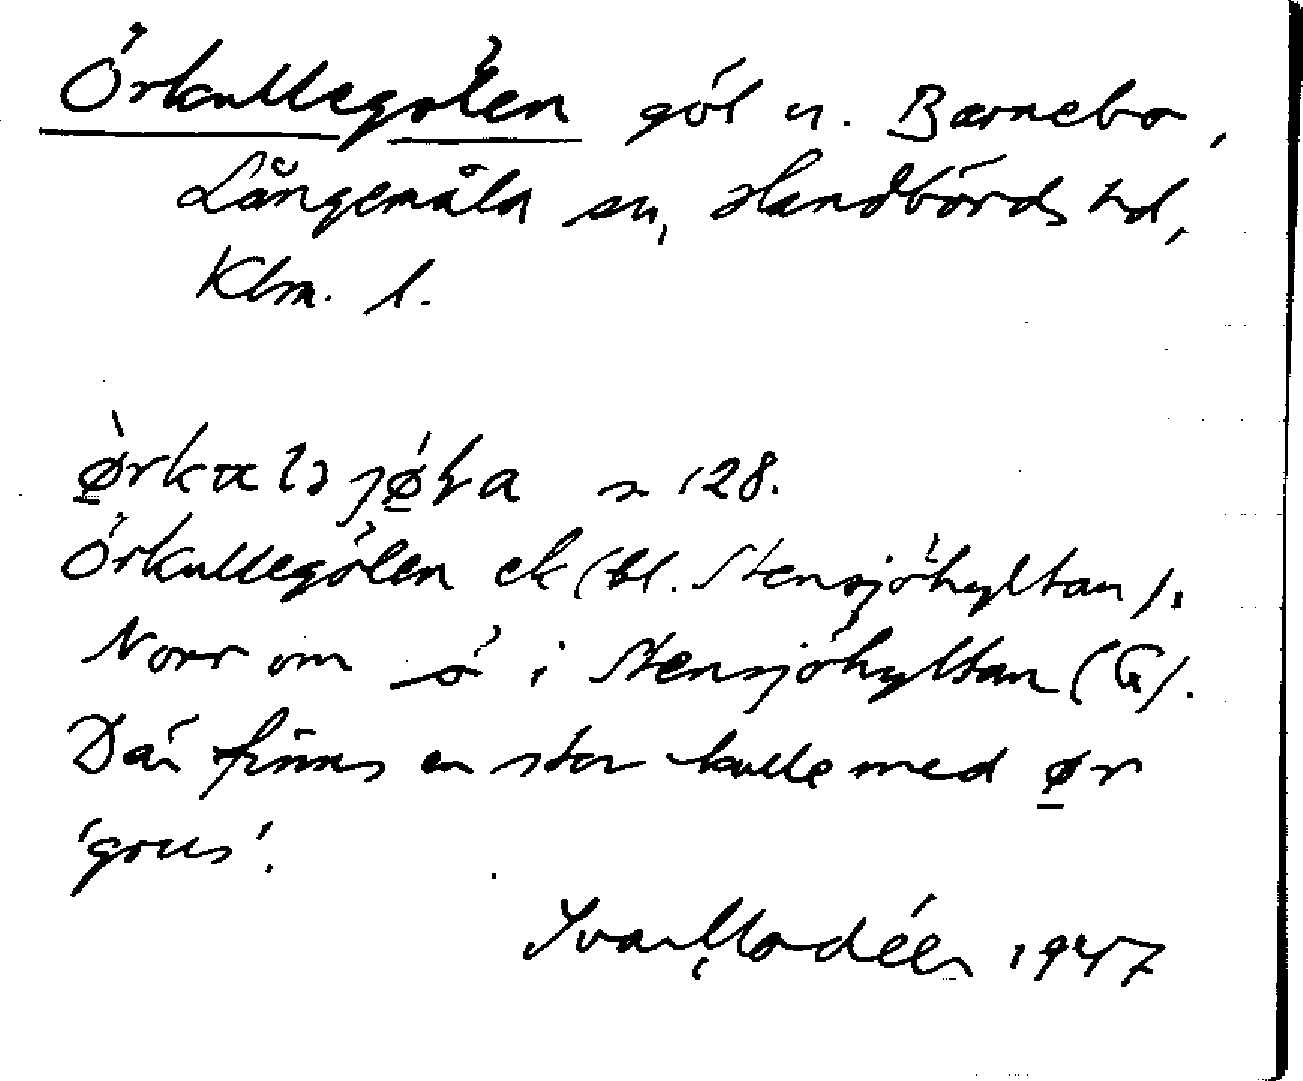 Örkullegölen göl n. Barnebo,
Långemåla sn, Handbörds hd,
Klm. l.
n 128.
Örkullegölen ek (bl. Stensjöhyltan).
Norr om ö i Stensjöhyltan (G).
Där finns en stor kulle med ør
'grus'.
Ivar Modéer 1947